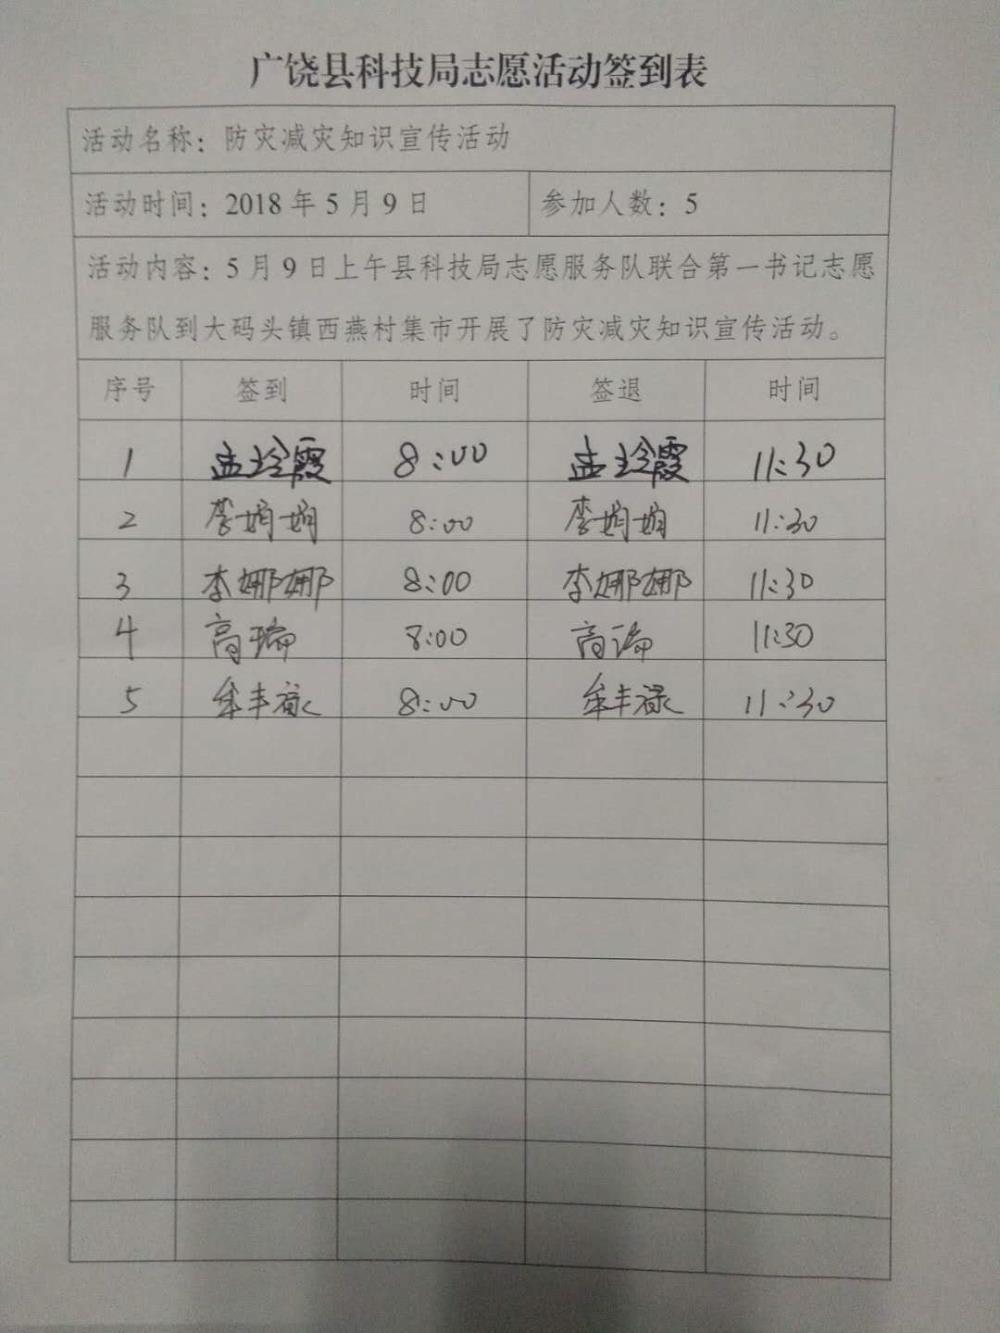 广饶县科技局志愿活动签到表
活动名称：防灾减灾知识宣传活动
活动时间：2018 年 5 月 9 日 参加人数：5
活动内容：5 月 9 日上午县科技局志愿服务队联合第一书记志愿
服务队到大码头镇西燕村集市开展了防灾减灾知识宣传活动。
序号 签到 时间 签退 时间
1 孟玲霞 8:00 孟玲霞 11:30
2 李娟娟 8:00 李娟娟 11:30
3 李娜娜 8:00 李娜娜 11:30
4 高瑞 8:00 高瑞 11:30
5 牟丰禄 8:00 牟丰禄 11:30